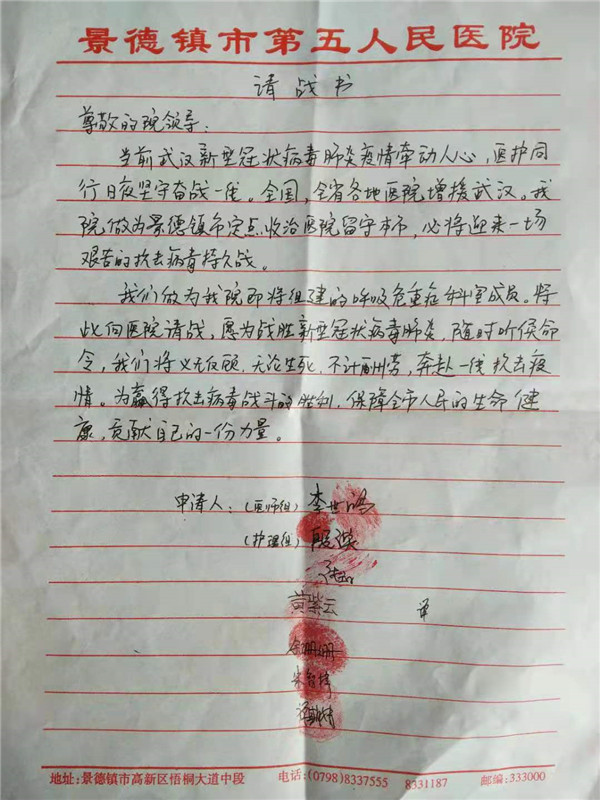 景德镇市第五人民医院
请战书
尊敬的院领导：
当前武汉新型冠状病毒肺炎疫情牵动人心，医护同
行日夜坚守奋战一线。全国，全省各地医院增援武汉。我
院做为景德镇市定点收治医院留守本市，必将迎来一场
艰苦的抗击病毒持久战。
我们做为我院即将组建的呼吸危重症科室成员。将
此向医院请战，愿为战胜新型冠状病毒肺炎，随时听候命
令，我们将义无反顾，无论生死，不计酬劳，奔赴一线抗击疫
情。为赢得抗击病毒战斗的胜利，保障全市人民的生命健
康，贡献自己的一份力量。
申请人：（医师组）李世浩
（护理组）殷
黄紫云
余珊珊
地址：景德镇市高新区梧桐大道中段 电话：(0798)8337555 8331187 邮编：333000